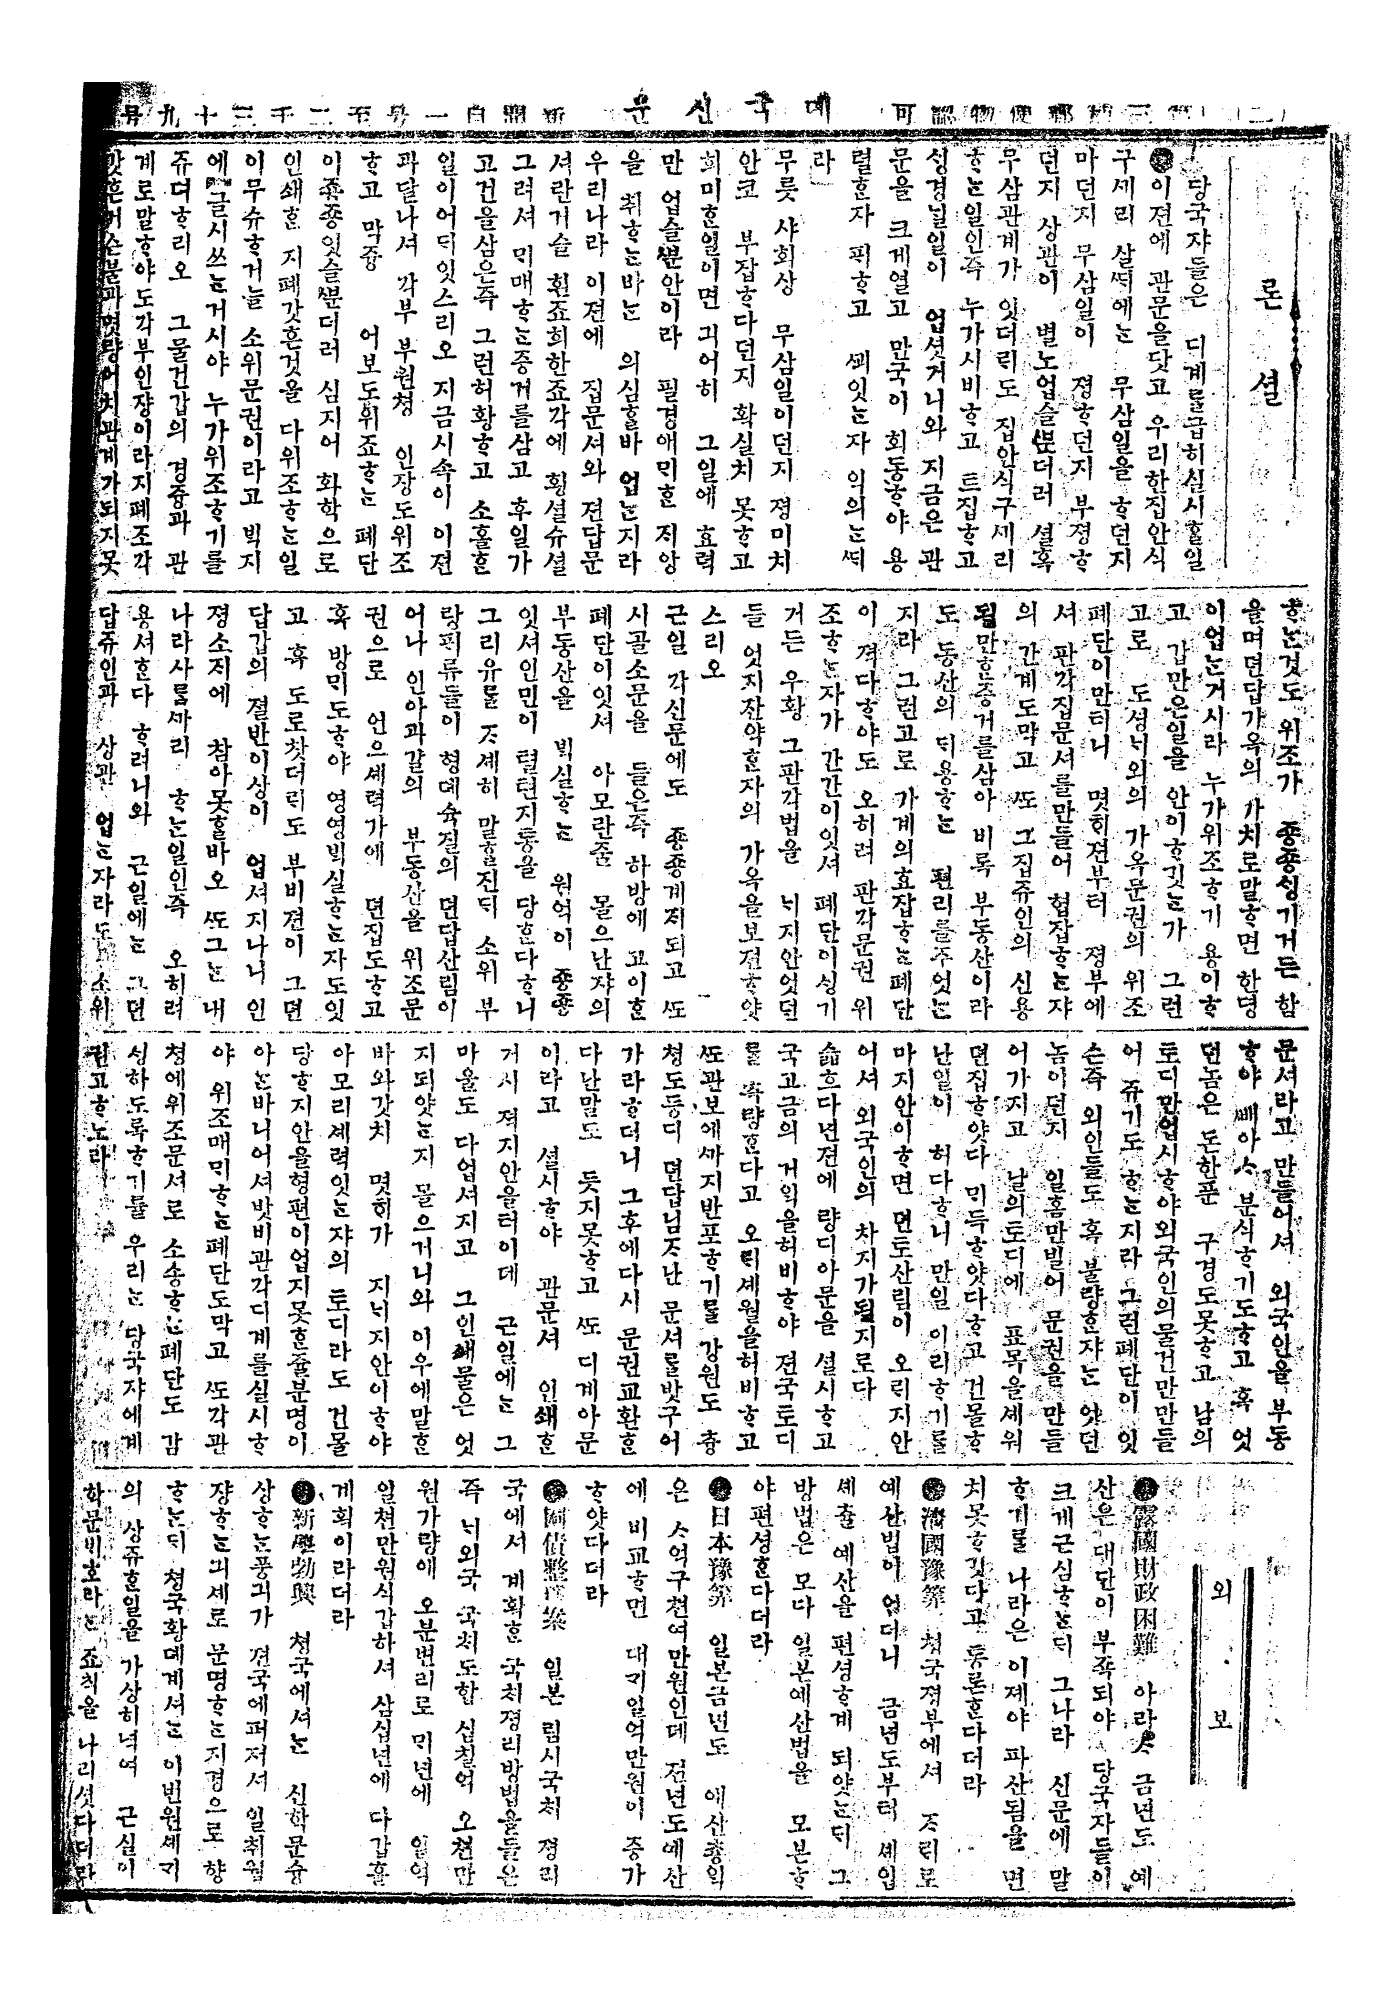 뎨국신문
론셜
당국쟈들은 디계를급히실시홀일
이젼에 관문을닷고 우리한집안식
구세리 살ᄯᅢ에ᄂᆞᆫ 무삼일을 ᄒᆞ던지
마던지 무삼일이 졍ᄒᆞ던지 부졍ᄒᆞ
던지 상관이 별노업슬ᄲᅮᆫ더러 셜혹
무삼관계가 잇더ᄅᆡ도 집안식구세리
ᄒᆞᄂᆞᆫ일인즉 누가시비ᄒᆞ고 트집ᄒᆞ고
싱경닐일이 업셧거니와 지금은 관
문을 크게열고 만국이 회동ᄒᆞ야 용
렬ᄒᆞᆫ자 픽ᄒᆞ고 ᄭᅬ잇ᄂᆞᆫ자 익의ᄂᆞᆫᄯᅢ
라
무릇 샤회상 무삼일이던지 졍미치
안코 부잡ᄒᆞ다던지 확실치 못ᄒᆞ고
희미ᄒᆞᆫ일이면 긔어히 그일에 효력
만 업슬ᄲᅮᆫ안이라 필경애ᄆᆡᄒᆞᆫ 지앙
을 취ᄒᆞᄂᆞᆫ바ᄂᆞᆫ 의심홀바 업ᄂᆞᆫ지라
우리나라 이젼에 집문셔와 젼답문
셔란거슬 흰죠희한죠각에 횡셜슈셜
그려셔 ᄆᆡ매ᄒᆞᄂᆞᆫ증거를삼고 후일가
고건을삼은즉 그런허황ᄒᆞ고 소홀ᄒᆞᆫ
일이어ᄃᆡ잇스리오 지금시속이 이젼
과달나셔 각부 부원쳥 인장도위조
ᄒᆞ고 막즁 어보도위죠ᄒᆞᄂᆞᆫ 폐단
이죵죵잇슬ᄲᅮᆫ더러 심지어 화학으로
인쇄ᄒᆞᆫ 지폐갓흔것을 다위조ᄒᆞᄂᆞᆫ일
이무슈ᄒᆞ거늘 소위문권이라고 ᄇᆡᆨ지
에 글시쓰ᄂᆞᆫ거시야 누가위조ᄒᆞ기를
쥬뎌ᄒᆞ리오 그물건갑의 경즁과 관
계로말ᄒᆞ야도각부인쟝이라지폐조각
갓흔거슨불과몃량어치관계가되지못
ᄒᆞᄂᆞᆫ것도 위조가 죵죵싱기거든 함
을며뎐답가옥의 가치로말ᄒᆞ면 한뎡
이업ᄂᆞᆫ거시라 누가위조ᄒᆞ기 용이ᄒᆞ
고 갑만은일을 안이ᄒᆞ깃ᄂᆞᆫ가 그런
고로 도셩ᄂᆡ외의 가옥문권의 위조
폐단이만터니 몃ᄒᆡ젼부터 졍부에
셔 판각집문셔를만들어 협잡ᄒᆞᄂᆞᆫ쟈
의 간계도막고 ᄯᅩ그집쥬인의 신용
될만ᄒᆞᆫ증거를삼아 비록 부동산이라
도 동산의 ᄃᆡ용ᄒᆞᄂᆞᆫ 편리를주엇ᄂᆞᆫ
지라 그런고로 가계의효잡ᄒᆞᄂᆞᆫ폐단
이 젹다ᄒᆞ야도 오히려 판각문권 위
조ᄒᆞᄂᆞᆫ자가 간간이잇셔 폐단이싱기
거든 우황 그판각법을 ᄂᆡ지안엇던
들 엇지잔약ᄒᆞᆫ자의 가옥을보젼ᄒᆞ얏
스리오
근일 각신문에도 죵죵게지되고 ᄯᅩ
시골소문을 들은즉 하방에 고이ᄒᆞᆫ
폐단이잇셔 아모란줄 몰으난쟈의
부동산을 ᄇᆡᆨ실ᄒᆞᄂᆞᆫ 원억이 죵죵
잇셔인민이 텰텬지통을 당ᄒᆞᆫ다ᄒᆞ니
그리유를 ᄌᆞ셰히 말ᄒᆞᆯ진ᄃᆡ 소위 부
랑픽류들이 형뎨슉질의 뎐답산림이
어나 인아과갈의 부동산을 위조문
권으로 언으셰력가에 뎐집도ᄒᆞ고
혹 방ᄆᆡ도ᄒᆞ야 영영ᄇᆡᆨ실ᄒᆞᄂᆞᆫ자도잇
고 혹 도로찻더ᄅᆡ도 부비젼이 그뎐
답갑의 졀반이상이 업셔지나니 인
졍소지에 참아못홀바오 ᄯᅩ그ᄂᆞᆫ 내
나라사ᄅᆞᆷᄭᅵ리 ᄒᆞᄂᆞᆫ일인즉 오히려
용셔ᄒᆞᆫ다 ᄒᆞ려니와 근일에ᄂᆞᆫ 그뎐
답쥬인과 상관 업ᄂᆞᆫ자라도 소위
문셔라고 만들어셔 외국인을 부동
ᄒᆞ야 ᄲᅢ아ᄉᆞ 분식ᄒᆞ기도ᄒᆞ고 혹 엇
던놈은 돈한푼 구경도못ᄒᆞ고 남의
토디만업시ᄒᆞ야외국인의물건만만들
어 쥬기도 ᄒᆞᄂᆞᆫ지라 그런폐단이 잇
슨즉 외인들도 혹 불량ᄒᆞᆫ쟈ᄂᆞᆫ 엇던
놈이던지 일홈만빌어 문권을 만들
어가지고 남의토디에 표목을셰워
뎐집ᄒᆞ얏다 ᄆᆡ득ᄒᆞ얏다ᄒᆞ고 건몰ᄒᆞ
난일이 허다ᄒᆞ니 만일 이리ᄒᆞ기를
마지안이ᄒᆞ면 뎐토산림이 오ᄅᆡ지안
어셔 외국인의 차지가될지로다
슯흐다년젼에 량디아문을 셜시ᄒᆞ고
국고금의 거익을허비ᄒᆞ야 젼국토디
를 측량ᄒᆞᆫ다고 오ᄅᆡ셰월을허비ᄒᆞ고
ᄯᅩ관보에ᄭᆞ지반포ᄒᆞ기를 강원도 츙
쳥도등디 뎐답님ᄌᆞ난 문셔를밧구어
가라ᄒᆞ더니 그후에다시 문권교환ᄒᆞᆫ
다난말도 듯지못ᄒᆞ고 ᄯᅩ 디계아문
이라고 셜시ᄒᆞ야 관문셔 인쇄ᄒᆞᆫ
거시 젹지안을터이데 근일에ᄂᆞᆫ 그
마을도 다업셔지고 그인쇄물은 엇
지되얏ᄂᆞᆫ지 몰으거니와 이우에말ᄒᆞᆫ
바와갓치 몃ᄒᆡ가 지ᄂᆡ지안이ᄒᆞ야
아모리셰력잇ᄂᆞᆫ쟈의 토디라도 건몰
당ᄒᆞ지안을형편이업지못ᄒᆞᆫ줄분명이
아ᄂᆞᆫ바니어셔밧비관각디계를실시ᄒᆞ
야 위조매ᄆᆡᄒᆞᄂᆞᆫ폐단도막고 ᄯᅩ각관
쳥에위조문셔로 소송ᄒᆞᄂᆞᆫ폐단도 감
싱하도록ᄒᆞ기를 우리ᄂᆞᆫ 당국쟈에게
권고ᄒᆞ노라
외보
露國財政困難 아라ᄉᆞ 금년도 예
산은 대단이 부죡되야 당국자들이
크게근심ᄒᆞᄂᆞᆫᄃᆡ 그나라 신문에 말
ᄒᆞ기를 나라은 이졔야 파산됨을 면
치못ᄒᆞ깃다고 통론ᄒᆞᆫ다더라
淸國豫算 쳥국졍부에셔 ᄌᆞᄅᆡ로
예산법이 업더니 금년도부터 셰입
셰츌 예산을 편셩ᄒᆞ게 되얏ᄂᆞᆫᄃᆡ 그
방법은 모다 일본예산법을 모본ᄒᆞ
야편셩ᄒᆞᆫ다더라
日本豫算 일본금년도 예산총익
은 ᄉᆞ억구쳔여만원인데 젼년도예산
에 비교ᄒᆞ면 대개일억만원이 증가
ᄒᆞ얏다더라
國債整理案 일본 림시국치 졍리
국에셔 계획ᄒᆞᆫ 국치졍리방법을들은
즉 ᄂᆡ외국 국치도합 십칠억 오쳔만
원가량에 오분변리로 ᄆᆡ년에 일억
일쳔만원식갑하셔 삼십년에 다갑흘
계획이라더라
新學勃興 쳥국에셔ᄂᆞᆫ 신학문슝
상ᄒᆞᄂᆞᆫ풍긔가 젼국에퍼져셔 일취월
쟝ᄒᆞᄂᆞᆫ긔셰로 문명ᄒᆞᄂᆞᆫ지경으로 향
ᄒᆞᄂᆞᆫᄃᆡ 쳥국황뎨게셔ᄂᆞᆫ 이번원셰ᄀᆡ
의 상쥬ᄒᆞᆫ일을 가상히녁여 근실이
학문비호라ᄂᆞᆫ 죠칙을 나리셧다더라